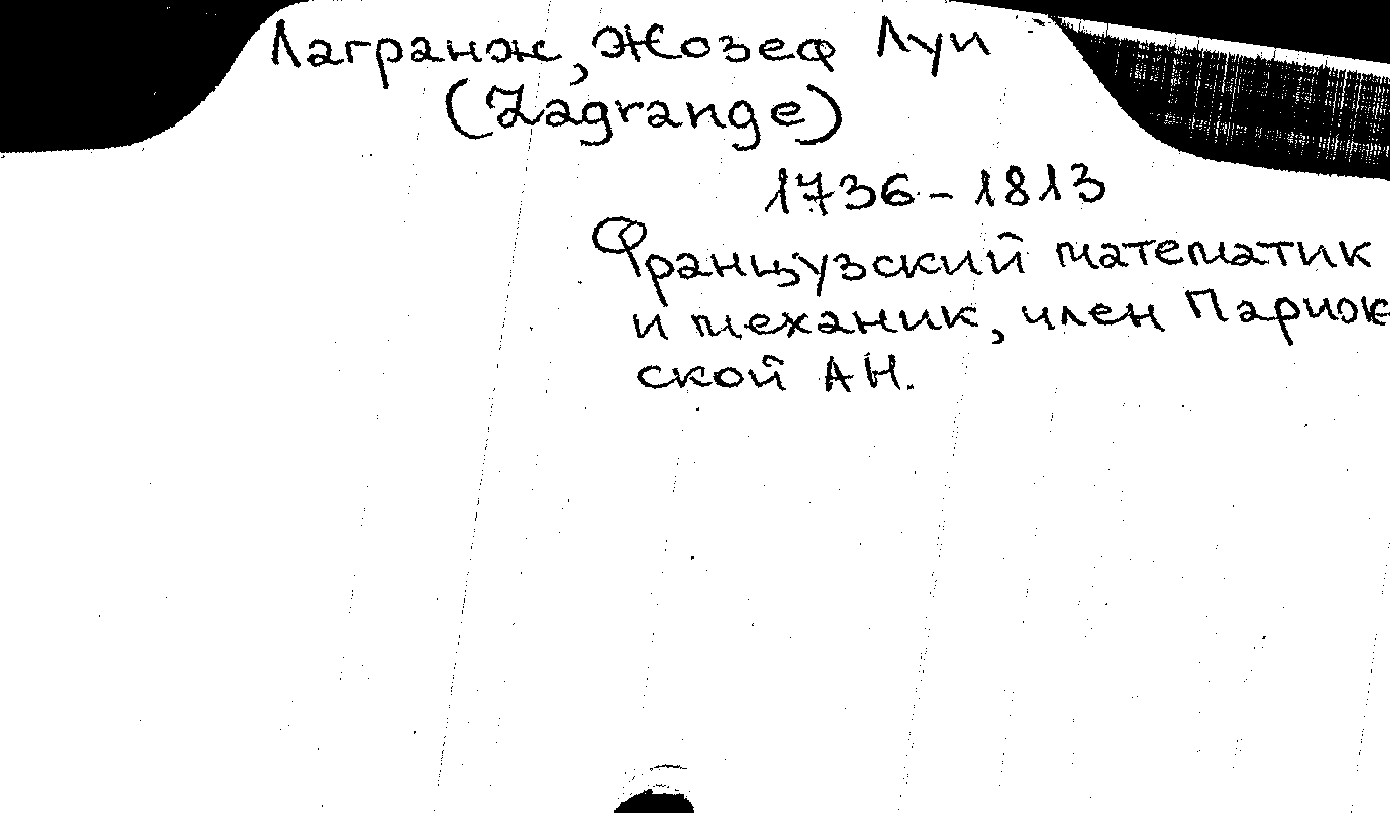 Лагранж, Жозеф Луи
(Lagrange)
1736-1813
Французский математик
и механик, член Париж
ской АН.